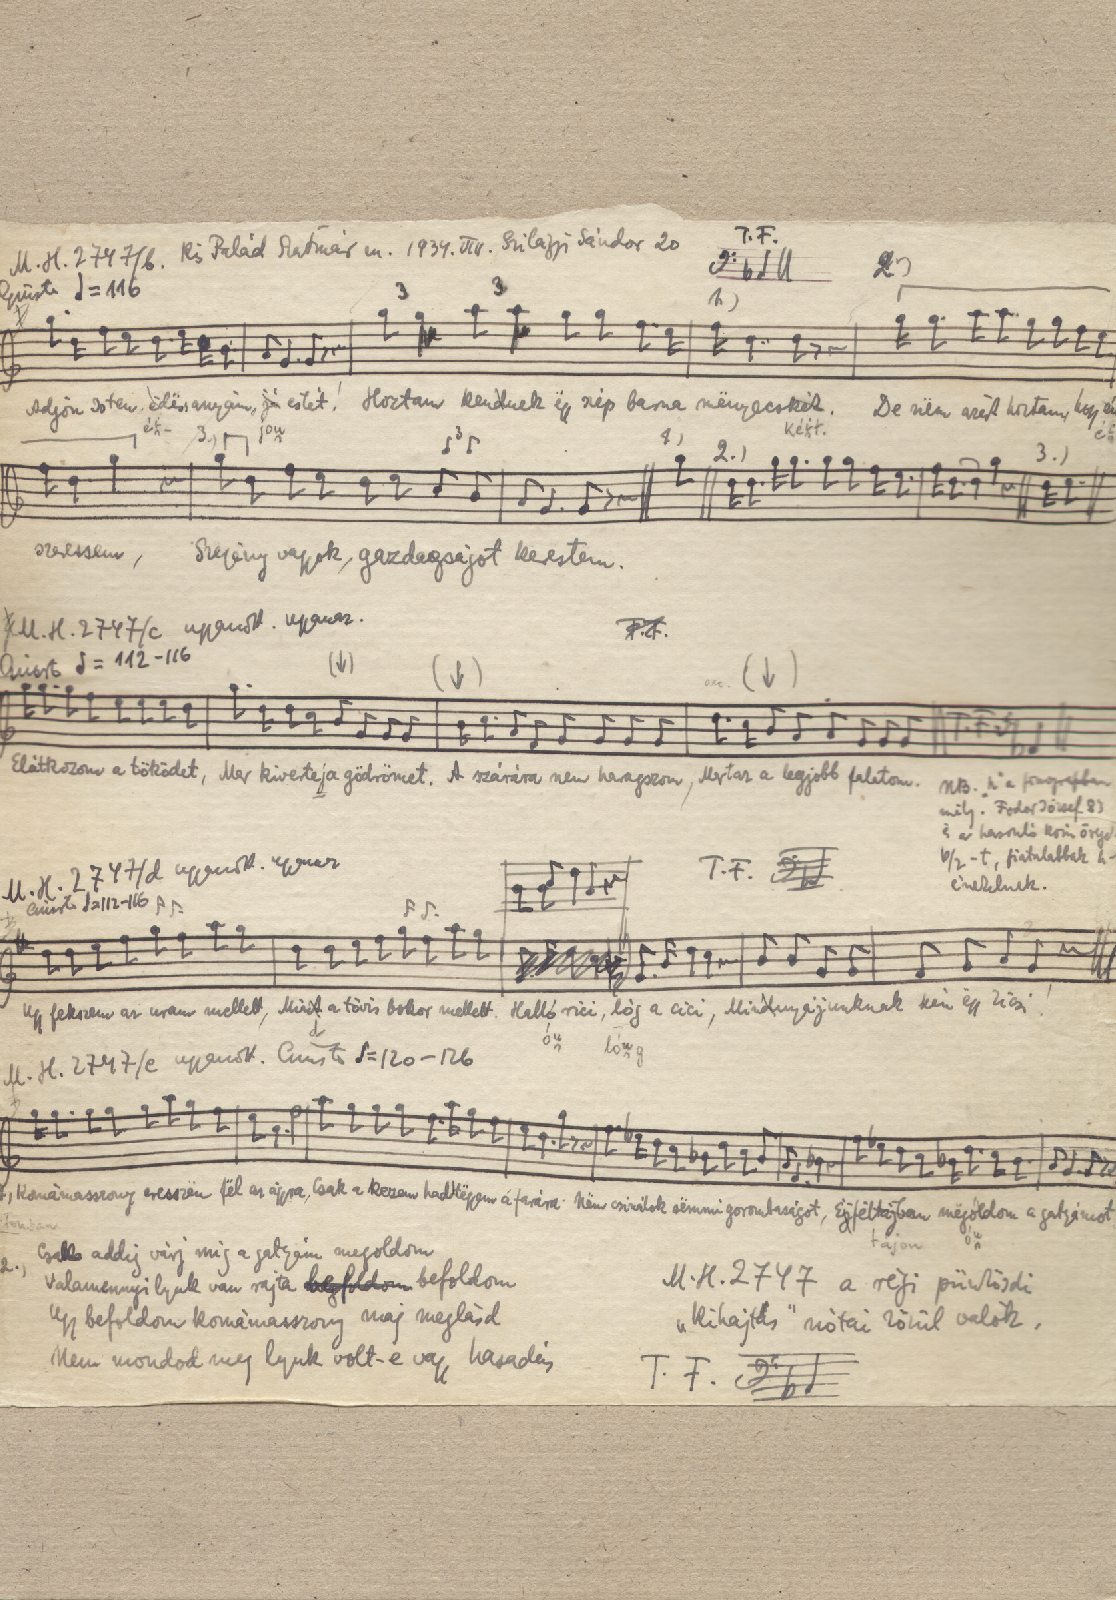 M.H. 2747/b. Kis Palád Szatmár m. 1934. VIII. Szilágyi Sándor 20
T.F.
Giusto ♩=116
3
3
1.)
2.)
Adjon Isten édësanyám, jó estét! Hoztam kendnek ëgy szép barna mënyecskét. De nëm azért hoztam, hogy
kéët.
3.)
3
1.)
2.)
3.)
szeressem, Szegény vagyok, gazdagságot kerestem.
M.H. 2747/c ugyanott. ugyanaz.
T.F.
Giusto ♩= 112-116
(↓) (↓) (↓)
T.F.
Elátkozom a töködet, Mer kiverte ja gödrömet. A szárára nem haragszom, Mer az a legjobb falatom.
NB. "h" a fonografban
mély. Fodor József 83
és a hasonló korú öregek
b/2-t, fiatalabbak h-
énekelnek.
M.H. 2747/d ugyanott. ugyanaz
T.F.
Giusto ♩=112-116
Ugy fekszem az uram mellett, Mint a tövis bokor mellett. Halló rici, lóg a cici, Mindnyájunknak van ëgy Zicsi!
M.H. 2747/e ugyanott. Giusto ♩=120-126
1., Komámasszony eresszën fël az ágyra, Csak a kezem hadd tëgyem a farára. Nëm csinálok sëmmi gorombaságot, Éjféltájban mëgóldom a gatyámot
tájon
2., Csak addig várj mig a gatyám megoldom
Valamennyi lyuk van rajta befoldom
Ugy befoldom komámasszony máj meglásd
Nem mondod meg lyuk volt-e vagy hasadás
M.H. 2747 a régi pünkösdi
"Kihajtás" nótái közül valók.
T.F.